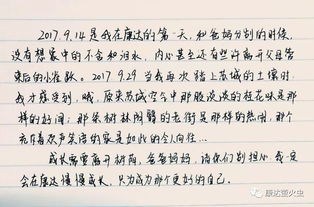 2017.9.14是我在康达的第一天，和爸妈分别的时候，
没有想象中的不舍和泪水，内心甚至还有些许离开父母管
束后的小雀跃。2017.9.29当我再次踏上苏城的土壤时，
我才感受到，哦，原来苏城空气中那股淡淡的桂花味是那
样的好闻；那朱树林荫翳的老街是那样的热闹，那个
充斥着欢声笑语的家是如此的令人向往...
成长需要离开树荫，爸爸妈妈，请你们别担心，我一定
会在康达慢慢成长，只为成为那个更好的自己。
康达萤火虫